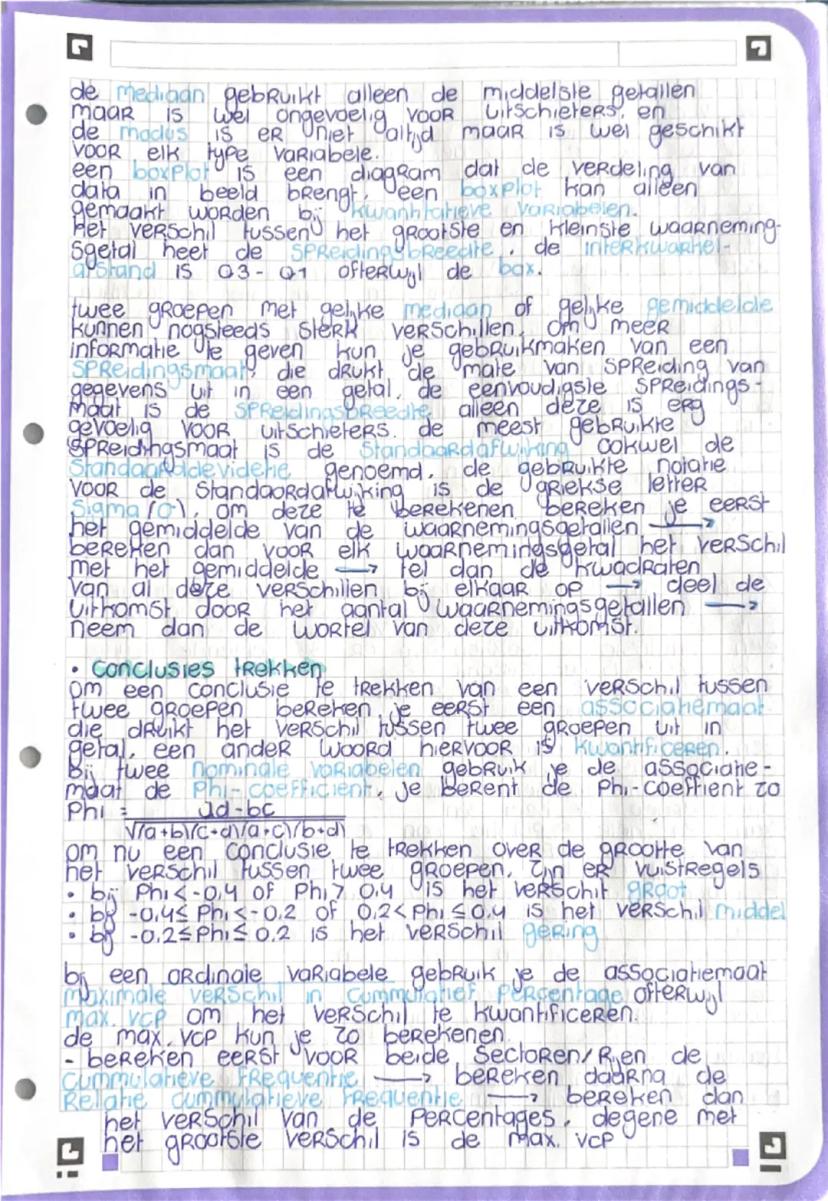 de mediaan gebruikt alleen de middelste getallen
maar is wel ongevoelig voor uitschieters. en
de modus is er niet altijd maar is wel geschikt
voor elk type variabele.
een boxplot is een diagram dat de verdeling van
data in beeld brengt, een boxplot kan alleen
gemaakt worden bij kwantitatieve variabelen.
Het verschil tussen het grootste en kleinste waarneming-
sgetal heet de spreidingsbreedte. de interkwartiel-
afstand is Q3-Q1 oftewijl de box.
twee groepen met gelijke mediaan of gelijke gemiddelde
kunnen nogsteeds sterk verschillen. om meer
informatie te geven kun je gebruikmaken van een
spreidingsmaat, die drukt de mate van spreiding van
gegevens uit in een getal. de eenvoudigste spreidings-
maat is de spreidingsbreedte alleen deze is erg
gevoelig voor uitschieters. de meest gebruikte
spreidingsmaat is de standaardafwijking ookwel de
standaarddevidetie genoemd. de gebruikte notatie
voor de standaardafwijking is de griekse letter
sigma (σ). om deze te berekenen bereken je eerst
het gemiddelde van de waarnemingsgetallen →
bereken dan voor elk waarnemingsgetal het verschil
met het gemiddelde → tel dan de kwadraten
van al deze verschillen bij elkaar op → deel de
uitkomst door het aantal waarnemingsgetallen →
neem dan de wortel van deze uitkomst.
• Conclusies trekken
om een conclusie te trekken van een verschil tussen
twee groepen bereken je eerst een associatiemaat
die drukt het verschil tussen twee groepen uit in
getal, een ander woord hiervoor is kwantificeren.
bij twee nominale variabelen gebruik je de associatie-
maat de Phi-coefficient. je berent de Phi-coeffient zo
Phi = ad-bc
√(a+b)(c+d)(a+c)(b+d)
om nu een conclusie te trekken over de grootte van
het verschil tussen twee groepen, zijn er vuistregels
• bij Phi<-0,4 of Phi>0,4 is het verschil groot
• bij -0,4≤Phi<-0,2 of 0,2<Phi≤0,4 is het verschil middel
• bij -0,2≤Phi≤0,2 is het verschil gering
bij een ordinale variabele gebruik je de associatiemaat
maximale verschil in cummulatief percentage ofterwijl
max. vcp om het verschil te kwantificeren.
de max. vcp kun je zo berekenen
- bereken eerst voor beide sectoren/rijen de
cummulatieve frequentie → bereken daarna de
relatie cummulatieve frequentie → bereken dan
het verschil van de percentages, degene met
het grootste verschil is de max. vcp